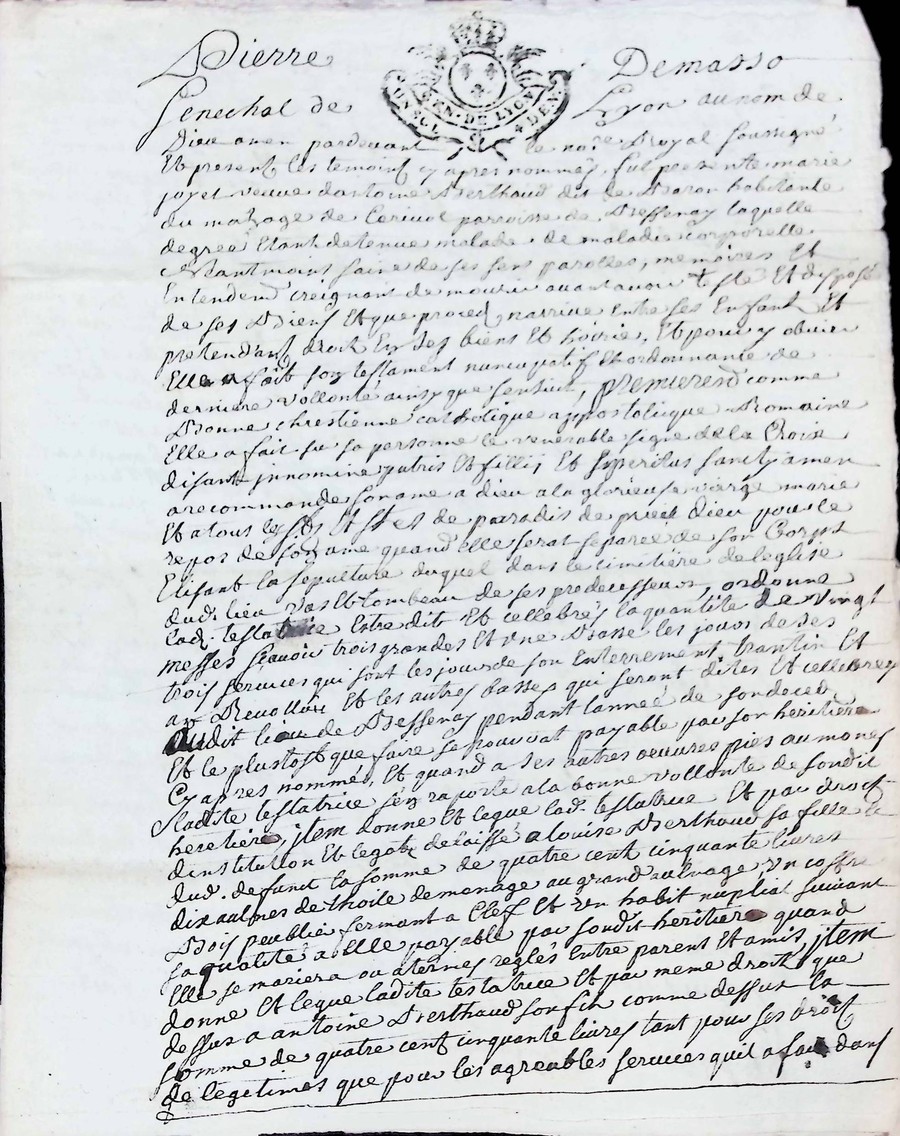 Pierre Demasso
GEN. DE LYON
Senechal de Lyon au nom de
Dieu amen pardevant le no.re Royal soussigné
Et present les temoins cy apres nommés, fut presente marie
joyet veuve dantoine Berthaud dit de Baron habitante
au mazage de paroisse de Bessenay laquelle
de gree Etant detenue malade de maladie corporelle
Neantmoins saine de ses sens parolles, memoires Et
Entendemt creignant de mourir avant avoir testé Et disposé
de ses Biens Et que proces narrive Entre ses Enfant Et
pretendant droit En ses biens Et hoirie, Et pour y obvier
Elle a fait son testament nuncupatif Et ordonnance de
derniere vollonté ainsy que sensuit, premierement comme
Bonne chrestienne catholique appostolique Romaine
Elle a fait su sa personne le venerable signe de la Croix
disant jnnomine patris Et filli, Et spiritus sancty amen
a recommandé son ame a dieu a la glorieuse vierge marie
Et a tous les Sts Et Stes de paradis de prier dieu pour le
repos de son ame quand elle serat separée de son Corps
Elisant la sepulture duquel dans le cimitière de leglise
dud. lieu vas Et tombeau de ses predecesseurs, ordonne
lad. testatrice Estre dit Et cellebrés la quantité de vingt
messes scavoir trois grandes Et une Basse les jours de ses
trois services qui sont les jours de son Enterrement trantin Et
an Revollu, Et les autres basses qui seront dites Et cellebrés
audit lieu de Bessenay pendant lannée de son deced
Et le plustost que faire se pourrat payable par son heritière
Cy apres nommés, Et quand a ses autres oeuvres pies aumones
Ladite testatrice sen raporte a la bonne vollonte de sondit
heretière, jtem donne Et legue lad. testatrice Et par droit
dinstitution Et legat delaissé a louise Berthaud sa fille &
dud. defunt la somme de quatre cent cinquante livres
dix aulnes de thoile de menage au grand aulnage un coffre
Bois peublie fermant a Clef Et un habit nuptial suivant
sa qualité a elle payable par sondit heritière quand
Elle se mariera ou a termes reglés Entre parent Et amis, jtem
donne Et legue ladite testatrice Et par meme droit que
dessus a antoine Berthaud son fis comme dessus la
somme de quatre cent cinquante livres tant pour ses droit
de legetimes que pour les agreables services quil a fait dans